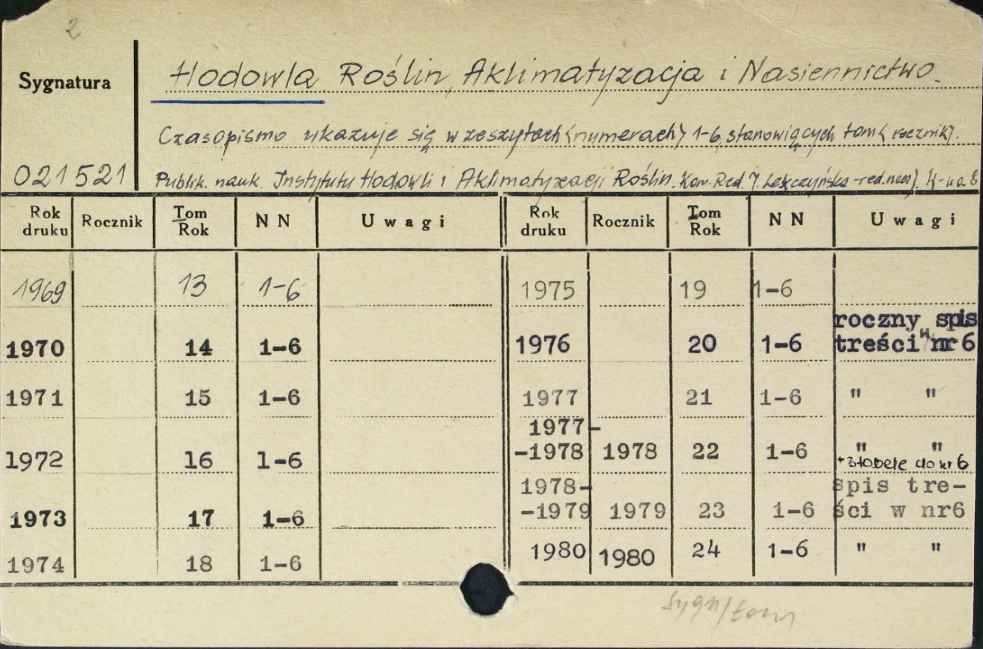 2
Sygnatura
Hodowla Roślin, Aklimatyzacja i Nasiennictwo.
Czasopismo ukazuje się w zeszytach (numerach) 1-6, stanowiących tom (rocznik).
021521
Publik. nauk. Instytutu Hodowli i Aklimatyzacji Roślin. Red.
Rok druku Rocznik Tom Rok NN Uwagi Rok druku Rocznik Tom Rok NN Uwagi
1969 13 1-6 1975 19 1-6
1970 14 1-6 1976 20 1-6 roczny spis treści w nr 6
1971 15 1-6 1977 21 1-6 " "
1972 16 1-6 1977-
-1978 1978 22 1-6 " "
do nr 6
1973 17 1-6 1978-
-1979 1979 23 1-6 spis tre-
ści w nr6
1974 18 1-6 1980 1980 24 1-6 " "